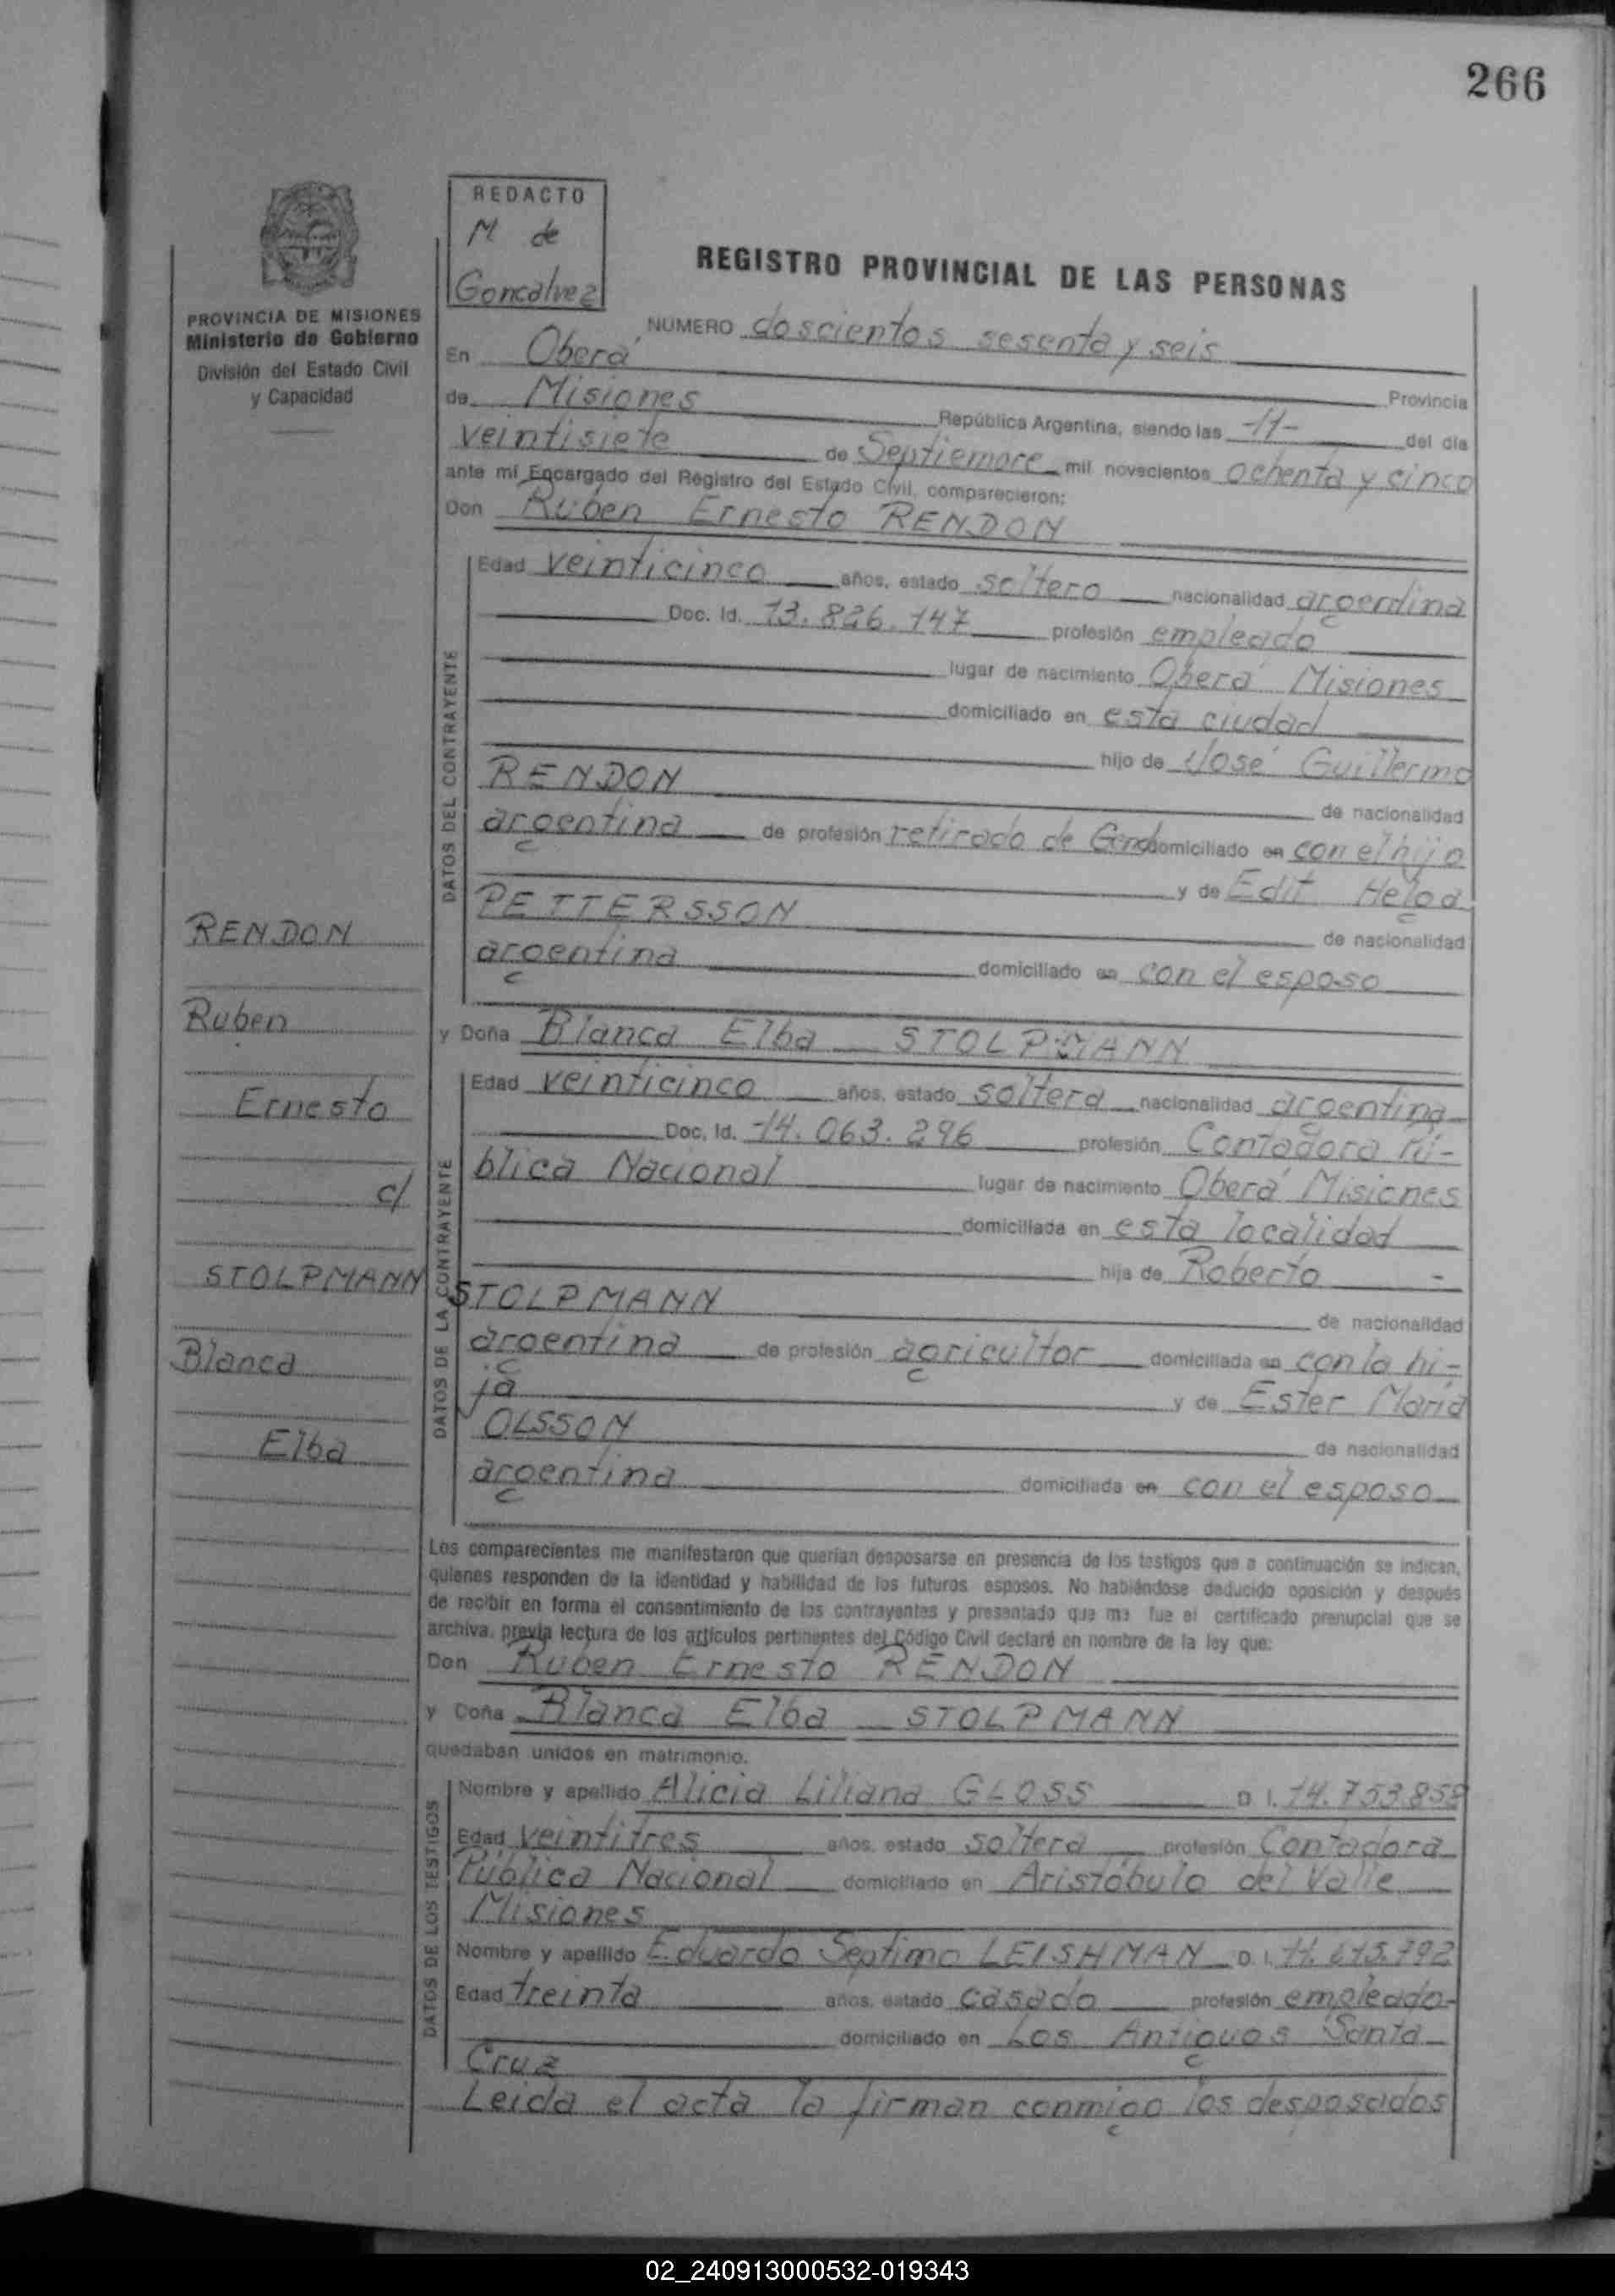 266
REDACTO
M de
Goncalvez
PROVINCIA DE MISIONES
Ministerio de Gobierno
División del Estado Civil
y Capacidad
REGISTRO PROVINCIAL DE LAS PERSONAS
NÚMERO doscientos sesenta y seis
En Oberá Provincia
de Misiones República Argentina, siendo las -11- del día
veintisiete de Septiembre mil novecientos ochenta y cinco
ante mí Encargado del Registro del Estado Civil, comparecieron:
Don Ruben Ernesto RENDON
DATOS DEL CONTRAYENTE
Edad veinticinco años, estado soltero nacionalidad argentina
Doc. Id. 13.826.147 profesión empleado
lugar de nacimiento Oberá Misiones
domiciliado en esta ciudad
hijo de José Guillermo
RENDON de nacionalidad
argentina de profesión retirado de Gend domiciliado en con el hijo
y de Edit Helga
PETTERSSON de nacionalidad
argentina domiciliado en con el esposo
y Doña Blanca Elba STOLPMANN
DATOS DE LA CONTRAYENTE
Edad veinticinco años, estado soltera nacionalidad argentina
Doc. Id. 14.063.296 profesión Contadora Pú-
blica Nacional lugar de nacimiento Oberá Misiones
domiciliada en esta localidad
hija de Roberto -
STOLPMANN de nacionalidad
argentina de profesión agricultor domiciliada en con la hi-
ja y de Ester María
OLSSON de nacionalidad
argentina domiciliada en con el esposo
RENDON
Ruben
Ernesto
c/
STOLPMANN
Blanca
Elba
Los comparecientes me manifestaron que querían desposarse en presencia de los testigos que a continuación se indican,
quienes responden de la identidad y habilidad de los futuros esposos. No habiéndose deducido oposición y después
de recibir en forma el consentimiento de los contrayentes y presentado que me fue el certificado prenupcial que se
archiva, previa lectura de los artículos pertinentes del Código Civil declaré en nombre de la ley que:
Don Ruben Ernesto RENDON
y Doña Blanca Elba STOLPMANN
quedaban unidos en matrimonio.
DATOS DE LOS TESTIGOS
Nombre y apellido Alicia Liliana GLOSS D. I. 14.753.858
Edad veintitres años, estado soltera profesión Contadora
Pública Nacional domiciliado en Aristóbulo del Valle
Misiones
Nombre y apellido Eduardo Septimo LEISHMAN D. I. 11.615.792
Edad treinta años, estado casado profesión empleado-
domiciliado en Los Antiguos Santa
Cruz
Leida el acta la firman conmigo los desposados
02_240913000532-019343